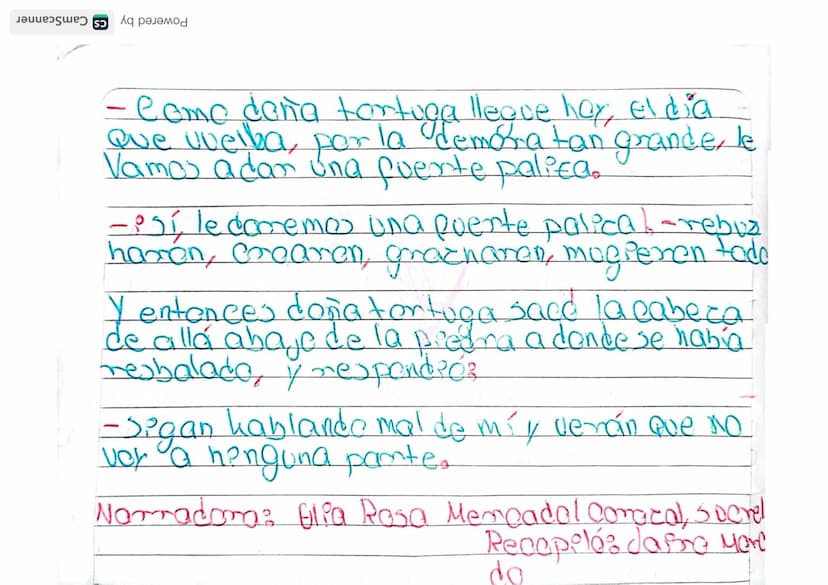 Powered by CS CamScanner
- Como doña tortuga llegue hoy, el día
que vuelba, por la demora tan grande, le
Vamos a dar una fuente paliza.
- ¡Sí, le daremos una fuente paliza! - rebuz
naron, croaron, graznaron, mugieron todo
Y entonces doña tortuga sacó la cabeza
de allá abajo de la piedra a donde se había
resbalado, y respondió:
- sigan hablando mal de mí y verán que no
voy a ninguna parte.
Narradora: Elia Rosa Mercado Corozal, sucre
Recopiló: dafro Merc
do